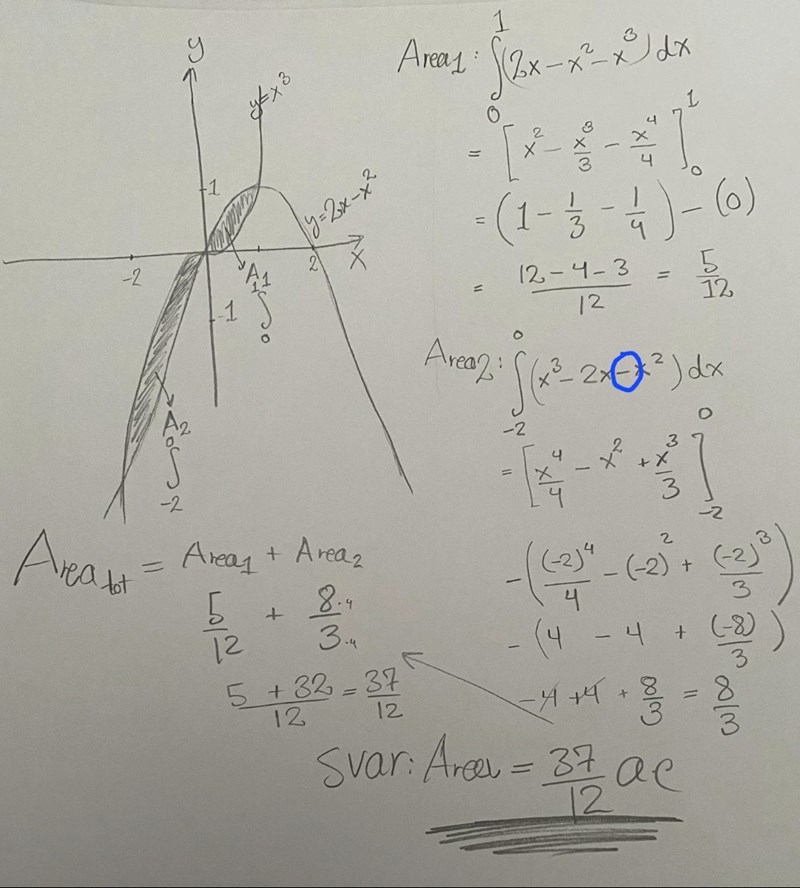 y
y=x³
1
y=2x-x²
-2
2
x
-1
A₁
1
∫
0
A₂
0
∫
-2
Area1: ∫₀¹(2x-x²-x³)dx
= [x² - x³/3 - x⁴/4]₀¹
= (1 - 1/3 - 1/4) - (0)
= (12-4-3)/12 = 5/12
Area2: ∫₋₂⁰(x³-2x-x²)dx
= [x⁴/4 - x² + x³/3]₋₂⁰
-((-2)⁴/4 - (-2)² + (-2)³/3)
-(4 - 4 + (-8)/3)
-4+4 + 8/3 = 8/3
Area tot = Area1 + Area2
5/12 + 8·4/3·4
(5+32)/12 = 37/12
Svar: Area = 37/12 ae